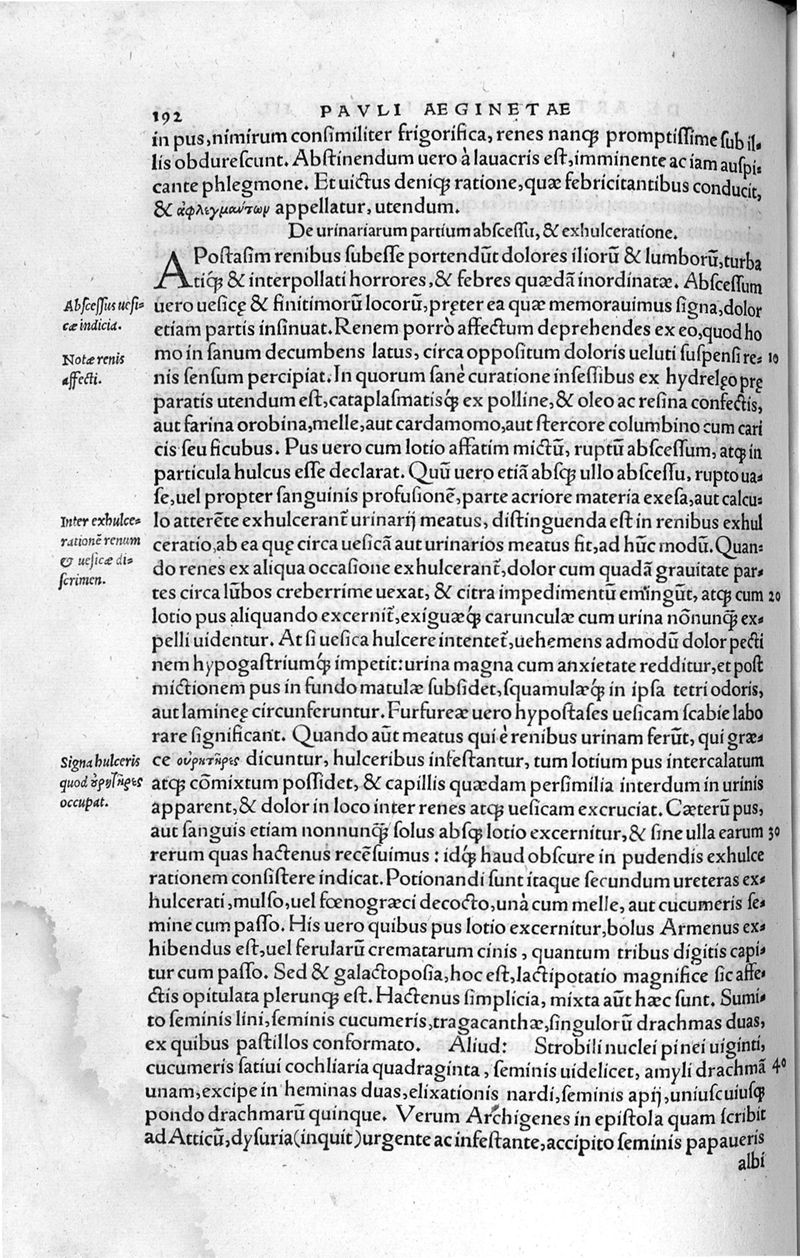 192 PAVLI AEGINETAE
in pus, nimirum consimiliter frigorifica, renes nanq; promptissime sub il-
lis obdurescunt. Abstinendum uero à lauacris est, imminente ac iam auspi-
cante phlegmone. Et uictus deniq; ratione, quæ febricitantibus conducit,
& ἀφλεγμαύτων appellatur, utendum.
De urinariarum partium abscessu, & exhulceratione.
APostasim renibus subesse portendūt dolores iliorū & lumborū, turba
tiq́; & interpollati horrores, & febres quædā inordinatæ. Abscessum
Abscessus uesi-
cæ indicia.
uero uesicę & finitimorū locorū, pręter ea quæ memorauimus signa, dolor
etiam partis insinuat. Renem porrò affectum deprehendes ex eo, quod ho
Notæ renis
affecti.
mo in sanum decumbens latus, circa oppositum doloris ueluti suspensi re- 10
nis sensum percipiat. In quorum sanè curatione insessibus ex hydrelęo prę
paratis utendum est, cataplasmatisq́; ex polline, & oleo ac resina confectis,
aut farina orobina, melle, aut cardamomo, aut stercore columbino cum cari
cis seu ficubus. Pus uero cum lotio affatim mictū, ruptū abscessum, atq; in
particula hulcus esse declarat. Quū uero etiā absq; ullo abscessu, rupto ua-
se, uel propter sanguinis profusionē, parte acriore materia exesa, aut calcu-
Inter exhulce-
rationē renum
& uesicæ di-
scrimen.
lo atterēte exhulcerant᷑ urinarij meatus, distinguenda est in renibus exhul
ceratio, ab ea quę circa uesicā aut urinarios meatus fit, ad hūc modū. Quan-
do renes ex aliqua occasione exhulcerant᷑, dolor cum quadā grauitate par-
tes circa lūbos creberrime uexat, & citra impedimentū emingūt, atq; cum 20
lotio pus aliquando excernit᷑, exiguæq́; carunculæ cum urina nōnunq̄; ex-
pelli uidentur. At si uesica hulcere intentet᷑, uehemens admodū dolor pecti
nem hypogastriumq́; impetit: urina magna cum anxietate redditur, et post
mictionem pus in fundo matulæ subsidet, squamulæq́; in ipsa tetri odoris,
aut laminęę circunferuntur. Furfureæ uero hypostases uesicam scabie labo
rare significant. Quando aūt meatus qui è renibus urinam ferūt, qui græ-
Signa hulceris
quod ὀρητῆρες
occupat.
ce οὐρητῆρες dicuntur, hulceribus infestantur, tum lotium pus intercalatum
atq; cōmixtum possidet, & capillis quædam persimilia interdum in urinis
apparent, & dolor in loco inter renes atq; uesicam excruciat. Cæterū pus,
aut sanguis etiam nonnunq̄; solus absq; lotio excernitur, & sine ulla earum 30
rerum quas hactenus recēsuimus: idq́; haud obscure in pudendis exhulce
rationem consistere indicat. Potionandi sunt itaque secundum ureteras ex-
hulcerati, mulso, uel fœnogræci decocto, unà cum melle, aut cucumeris se-
mine cum passo. His uero quibus pus lotio excernitur, bolus Armenus ex-
hibendus est, uel ferularū crematarum cinis, quantum tribus digitis capi-
tur cum passo. Sed & galactoposia, hoc est, lactipotatio magnifice sic affe-
ctis opitulata plerunq; est. Hactenus simplicia, mixta aūt hæc sunt. Sumi-
to seminis lini, seminis cucumeris, tragacanthæ, singulorū drachmas duas,
ex quibus pastillos conformato. Aliud: Strobili nuclei pinei uiginti,
cucumeris satiui cochliaria quadraginta, seminis uidelicet, amyli drachmā 40
unam, excipe in heminas duas, elixationis nardi, seminis apij, uniuscuiusq;
pondo drachmarū quinque. Verum Archigenes in epistola quam scribit
ad Atticū, dysuria (inquit) urgente ac infestante, accipito seminis papaueris
albi